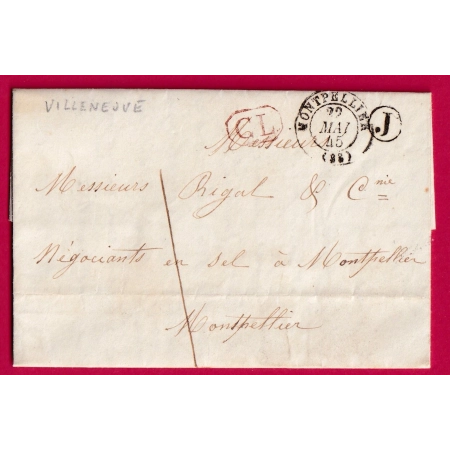 VILLENEUVE
CL
MONTPELLIER
22
MAI
45
(33)
J
Messieurs
Messieurs Rigal & Cnie
Négociants en sel à Montpellier
Montpellier